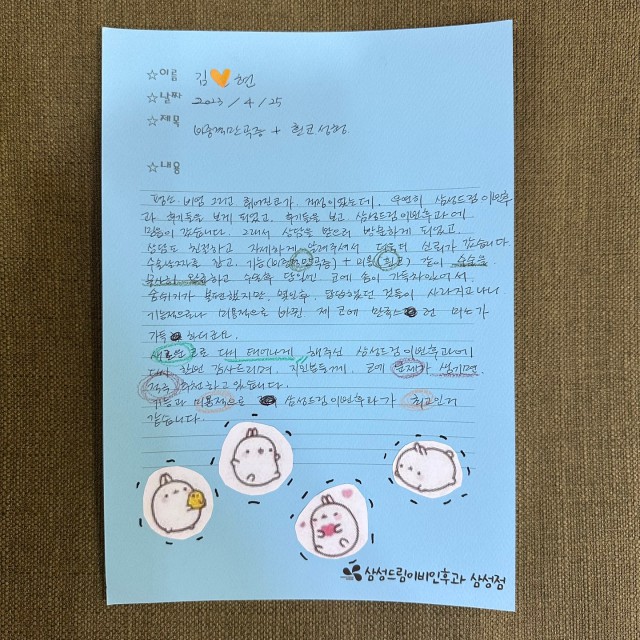 ☆이름 김🧡현
☆날짜 2023 / 4 / 25
☆제목 비중격만곡증 + 휜코 성형
☆내용
평소 비염 그리고 휘어진코가 고민이었는데, 우연히 삼성드림이비인후
과 후기들을 보게 되었고, 후기들을 보고 삼성드림이비인후과에
믿음이 갔습니다. 그래서 상담을 받으러 방문하게 되었고,
상담도 친절하고 자세하게 해주셔서 더욱더 신뢰가 갔습니다.
수술날짜를 잡고, 기능(비중격만곡증) + 미용(휜코) 같이 수술을
무사히 완료하고 수술 당일엔 코에 솜이 가득차있어서
숨쉬기가 불편했지만 답답했던 것들이 사라지고나니
기능적으로나 미용적으로 바뀐 제 코에 만족스러운 미소가
가득 하더라고요.
새로운 코로 다시 태어나게 해주신 삼성드림이비인후과에
다시 한번 감사드리며, 지인분들에게 코에 문제가 생기면,
적극 추천하고 있습니다.
기능과 미용적으로 삼성드림이비인후과가 최고인거
같습니다.
삼성드림이비인후과 삼성점